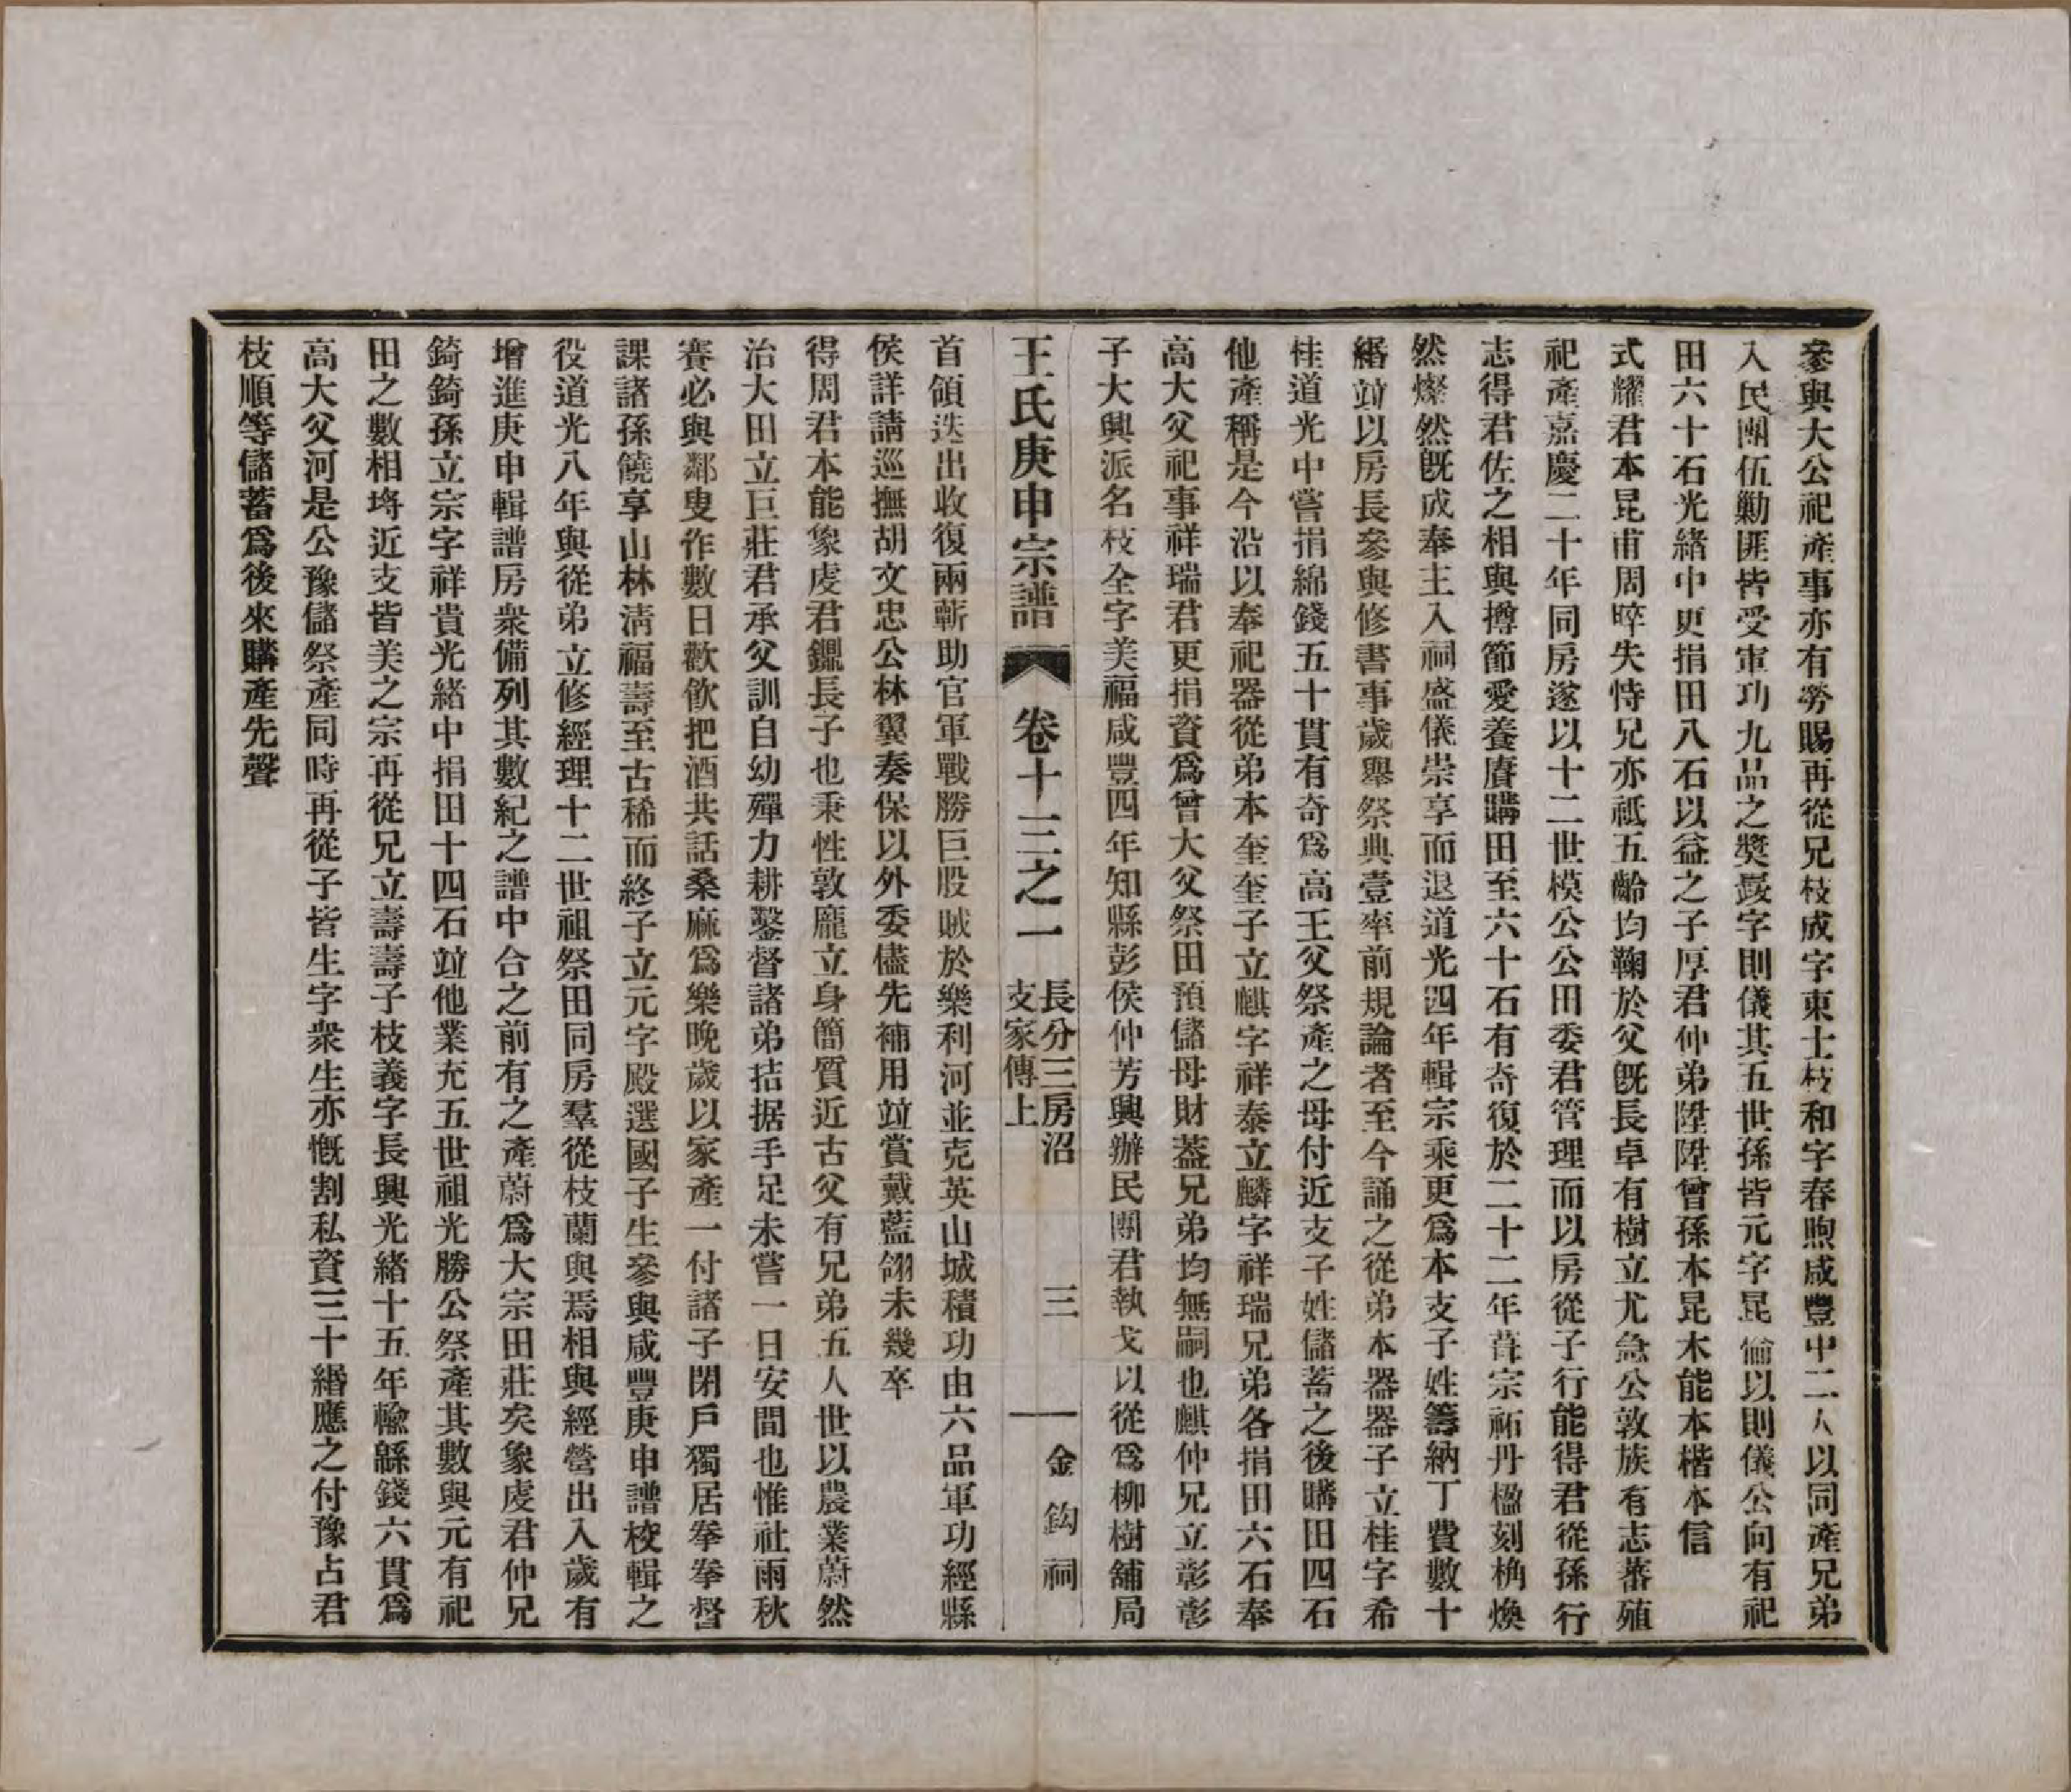 參與大公祀產事亦有勞賜再從兄枝成字東士枝和字春煦咸豐中二人以同產兄弟
入民團伍勦匪皆受軍功九品之獎鍰字則儀其五世孫皆元字昆倫以則儀公向有祀
田六十石光緒中更捐田八石以益之子厚君仲弟陞陞曾孫本昆木能本楷本信
式耀君本昆甫周晬失恃兄亦祗五齡均鞠於父旣長卓有樹立尤急公敦族有志蕃殖
祀產嘉慶二十年同房遂以十二世模公公田委君管理而以房從子行能得君從孫行
志得君佐之相與撙節愛養賡購田至六十石有奇復於二十二年葺宗祏丹楹刻桷煥
然燦然旣成奉主入祠盛儀崇享而退道光四年輯宗乘更爲本支子姓籌納丁費數十
緡竝以房長參與修書事歲舉祭典壹率前規論者至今誦之從弟本器器子立桂字希
桂道光中嘗捐綿錢五十貫有奇爲高王父祭產之母付近支子姓儲蓄之後購田四石
他產稱是今沿以奉祀器從弟本奎奎子立麒字祥泰立麟字祥瑞兄弟各捐田六石奉
高大父祀事祥瑞君更捐資爲曾大父祭田預儲母財蓋兄弟均無嗣也麒仲兄立彰彰
子大興派名枝全字美福咸豐四年知縣彭侯仲芳興辦民團君執戈以從爲柳樹舖局
王氏庚申宗譜 卷十三之一 長分三房沼支家傳上 三 金鈎祠
首領迭出收復兩蘄助官軍戰勝巨股賊於樂利河並克英山城積功由六品軍功經縣
侯詳請巡撫胡文忠公林翼奏保以外委儘先補用竝賞戴藍翎未幾卒
得周君本能象虔君鑑長子也秉性敦龐立身簡質近古父有兄弟五人世以農業蔚然
治大田立巨莊君承父訓自幼殫力耕鑿督諸弟拮据手足未嘗一日安閒也惟社雨秋
賽必與鄰叟作數日歡飮把酒共話桑麻爲樂晚歲以家產一付諸子閉戶獨居拳拳督
課諸孫饒享山林淸福壽至古稀而終子立元字殿選國子生參與咸豐庚申譜校輯之
役道光八年與從弟立修經理十二世祖祭田同房羣從枝蘭與焉相與經營出入歲有
增進庚申輯譜房衆備列其數紀之譜中合之前有之產蔚爲大宗田莊矣象虔君仲兄
錡錡孫立宗字祥貴光緒中捐田十四石竝他業充五世祖光勝公祭產其數與元有祀
田之數相埒近支皆美之宗再從兄立壽壽子枝義字長興光緒十五年輸緜錢六貫爲
高大父河是公豫儲祭產同時再從子皆生字衆生亦慨割私資三十緡應之付豫占君
枝順等儲蓄爲後來購產先聲